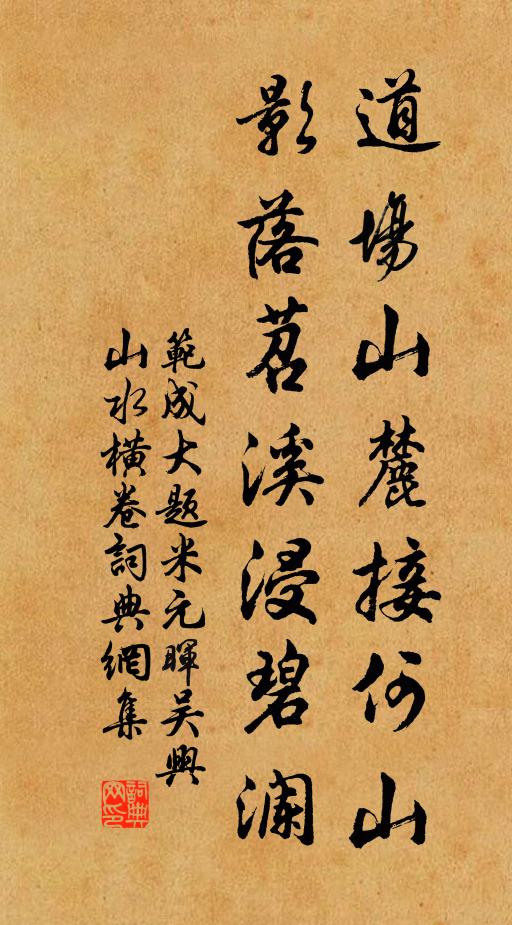 道場山麓接何山
影落苕溪浸碧瀾
範成大題米元暉吴興
山水橫卷詞典網集
詞典
网印